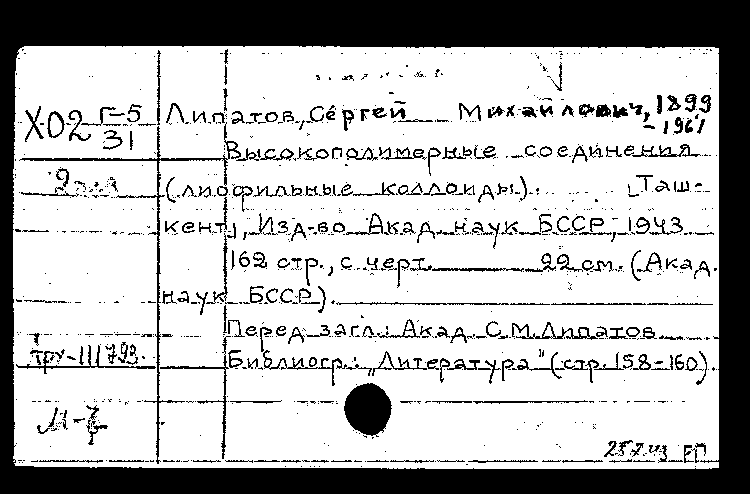 Х02 Г-5
31
Липатов, Сергей Михайлович, 1899
- 1961
Высокополимерные соединения
(лиофильные коллоиды). [Таш-
кент], Изд-во Акад. наук БССР, 1943
162 стр., с черт. 22 см. (Акад.
наук БССР).
Перед загл.: Акад. С.М. Липатов
Библиогр.: „Литература" (стр. 158-160).